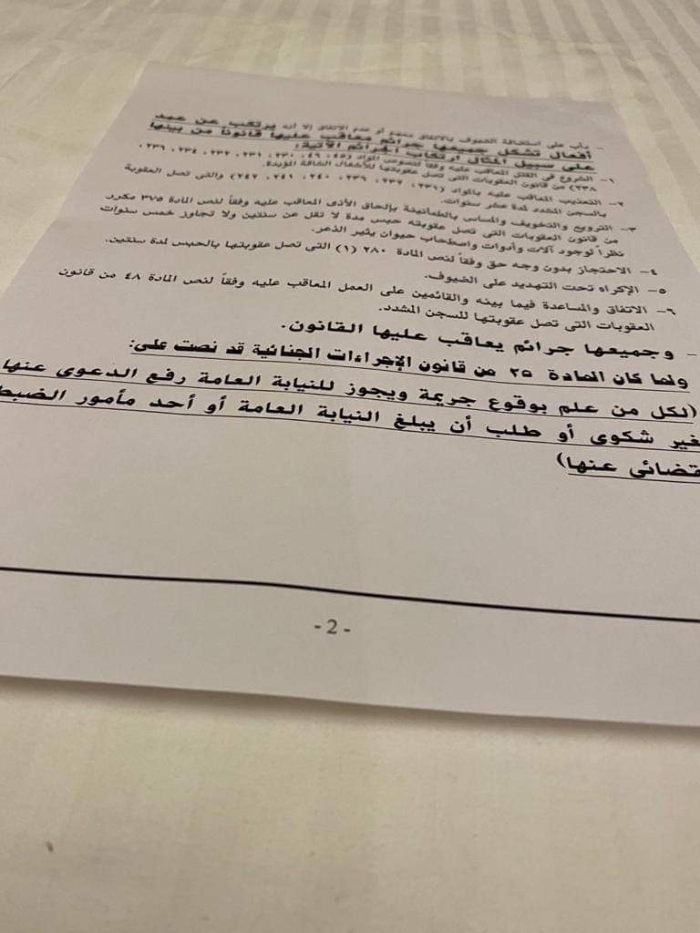 - دأب على استضافة الضيوف بالاتفاق معهم أو عدم الاتفاق إلا أنه يرتكب عن عمد
أفعال تشكل جميعها جرائم معاقب عليها قانوناً من بينها
على سبيل المثال ارتكاب الجرائم الآتية:
١- الشروع فى القتل المعاقب عليه وفقاً لنصوص المواد (٤٥، ٤٦، ٢٣٠، ٢٣١، ٢٣٢، ٢٣٤، ٢٣٦،
٢٣٨) من قانون العقوبات التى تصل عقوبتها للأشغال الشاقة المؤبدة.
٢- التعذيب المعاقب عليه بالمواد (٢٣١، ٢٣٢، ٢٣٦، ٢٤٠، ٢٤١، ٢٤٢) والتى تصل العقوبة
بالسجن المشدد لمدة عشر سنوات.
٣- الترويع والتخويف والمساس بالطمأنينة بإلحاق الأذى المعاقب عليه وفقاً لنص المادة ٣٧٥ مكرر
من قانون العقوبات التى تصل عقوبته حبس مدة لا تقل عن سنتين ولا تجاوز خمس سنوات
نظراً لوجود آلات وأدوات واصطحاب حيوان يثير الذعر.
٤- الاحتجاز بدون وجه حق وفقاً لنص المادة ٢٨٠ (١) التى تصل عقوبتها بالحبس لمدة سنتين.
٥- الإكراه تحت التهديد على الضيوف.
٦- الاتفاق والمساعدة فيما بينه والقائمين على العمل المعاقب عليه وفقاً لنص المادة ٤٨ من قانون
العقوبات التى تصل عقوبتها للسجن المشدد.
- وجميعها جرائم يعاقب عليها القانون.
ولما كان المادة ٢٥ من قانون الإجراءات الجنائية قد نصت على:
(لكل من علم بوقوع جريمة ويجوز للنيابة العامة رفع الدعوى عنها
غير شكوى أو طلب أن يبلغ النيابة العامة أو أحد مأمور الضبط
قضائى عنها)
- 2 -